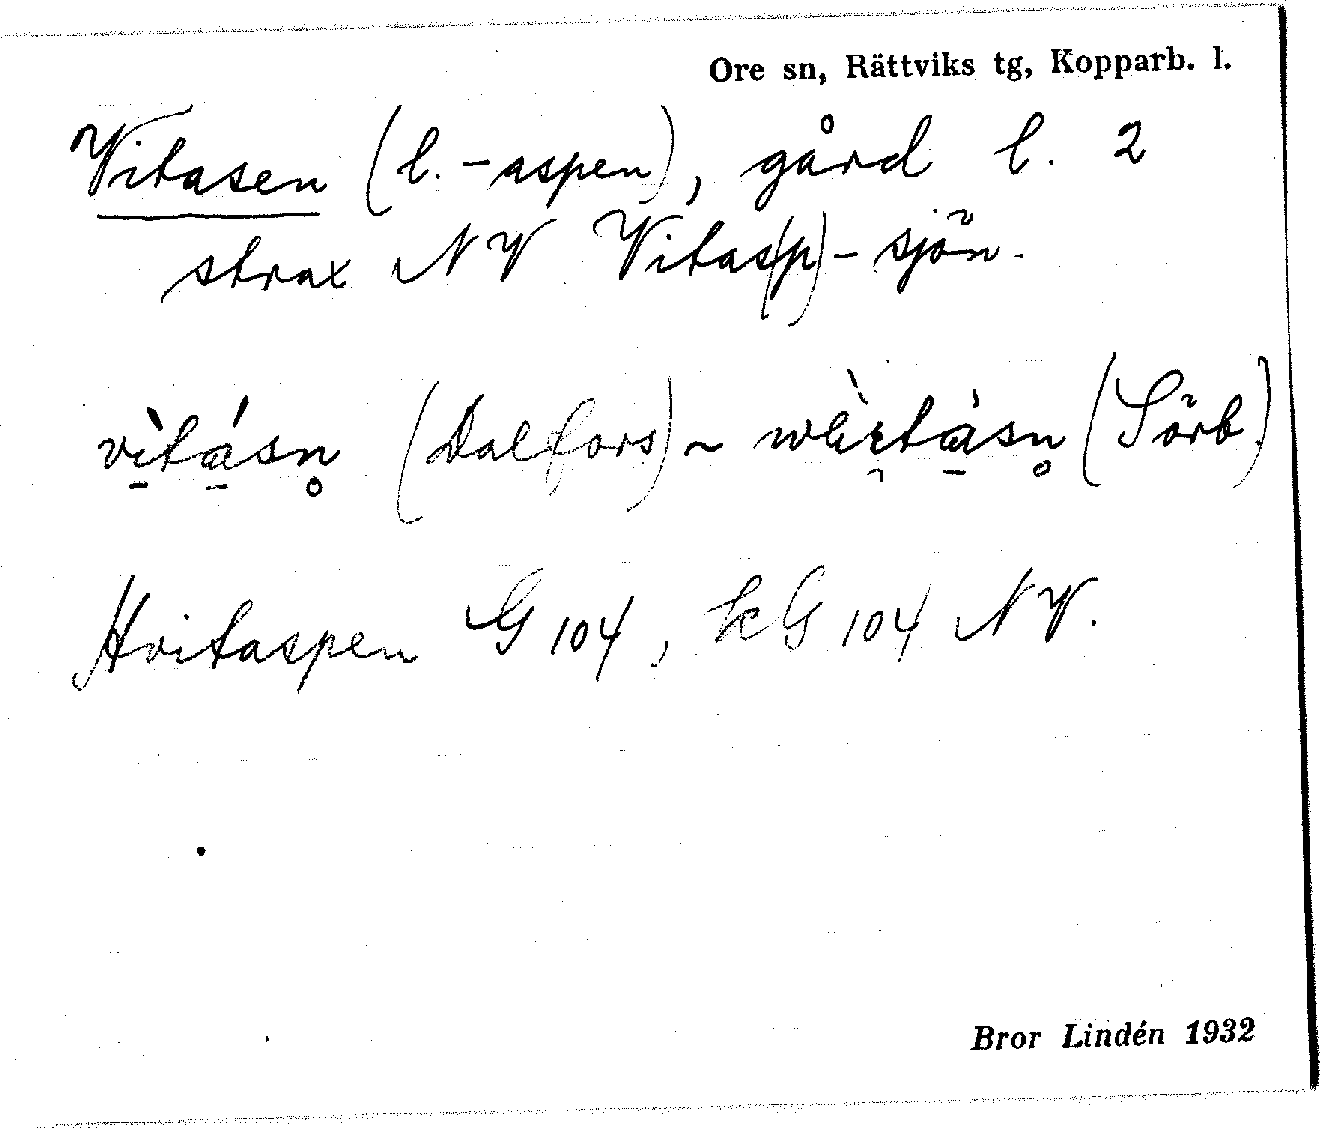 Ore sn, Rättviks tg, Kopparb. l.
Vitasen (l. -aspen), gård l. 2
strax NV Vitas(p)-sjön.
vìtásn̥ (Dalfors) ~ (Sörb.)
Hvitaspen G 104, kG 104 NV.
Bror Lindén 1932